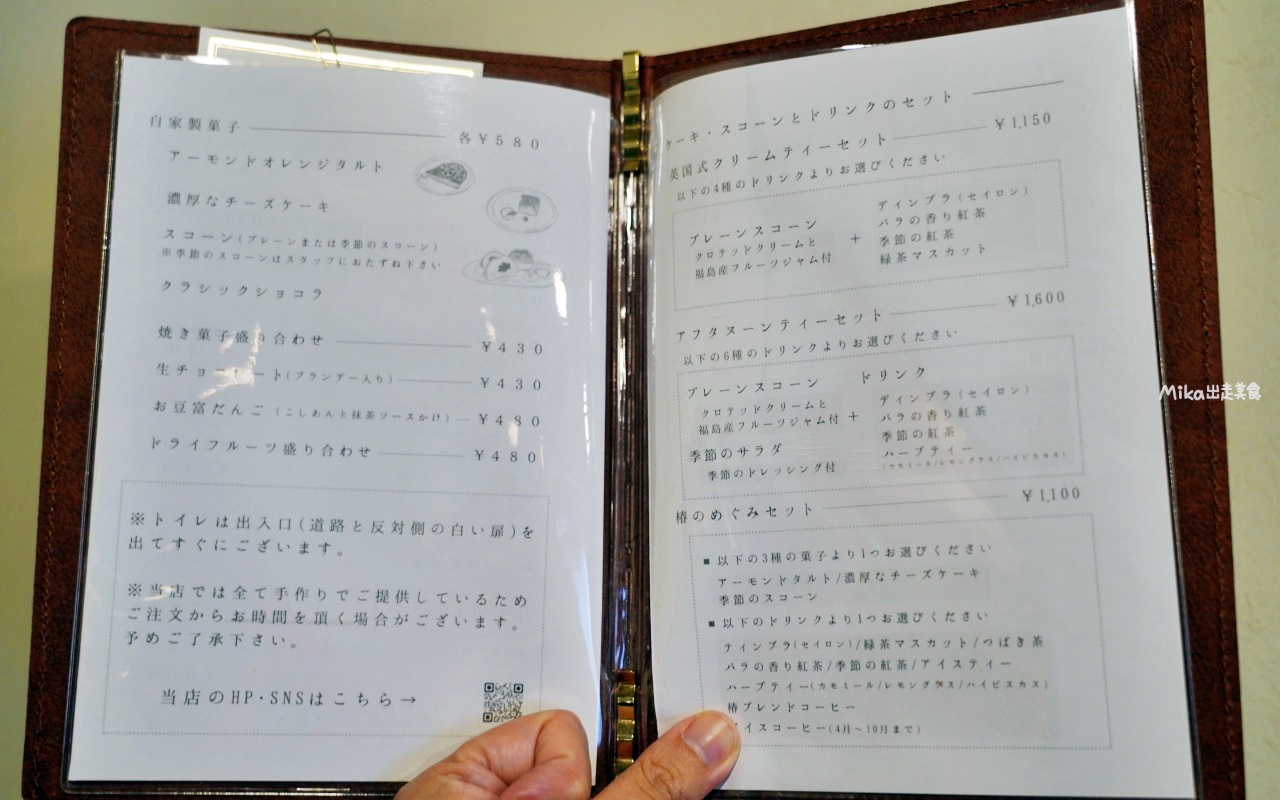 自家製菓子 各￥580
アーモンドオレンジタルト
濃厚なチーズケーキ
スコーン(プレーンまたは季節のスコーン)
※季節のスコーンはスタッフにおたずね下さい
クラシックショコラ
焼き菓子盛り合わせ ￥430
生チョ ート(ブランデー入り) ￥430
お豆富だんご (こしあんと抹茶ソースかけ) ￥480
ドライフルーツ盛り合わせ ￥480
※トイレは出入口(道路と反対側の白い扉)を
出てすぐにございます。
※当店では全て手作りでご提供しているため
ご注文からお時間を頂く場合がございます。
予めご了承下さい。
当店のHP・SNSはこちら→
ケーキ・スコーンとドリンクのセット
英国式クリームティーセット ￥1,150
以下の4種のドリンクよりお選びください
プレーンスコーン
クロテッドクリームと
福島産フルーツジャム付
+
ディンブラ(セイロン)
バラの香り紅茶
季節の紅茶
緑茶マスカット
アフタヌーンティーセット ￥1,600
以下の6種のドリンクよりお選びください
プレーンスコーン
クロテッドクリームと
福島産フルーツジャム付
季節のサラダ
季節のドレッシング付
+
ドリンク
ディンブラ(セイロン)
バラの香り紅茶
季節の紅茶
ハーブティー
(カモミール/レモングラス/ハイビスカス)
椿のめぐみセット ￥1,100
■ 以下の3種の菓子より1つお選びください
アーモンドタルト/濃厚なチーズケーキ
季節のスコーン
■ 以下のドリンクより1つお選びください
ディンブラ(セイロン)/緑茶マスカット/つばき茶
バラの香り紅茶/季節の紅茶/アイスティー
ハーブティー(カモミール/レモングラス/ハイビスカス)
椿ブレンドコーヒー
イスコーヒー(4月～10月まで)
Mika出走美食